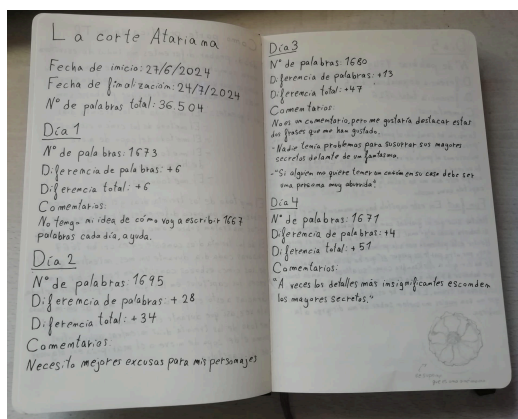 La corte Atariana
Fecha de inicio: 27/6/2024
Fecha de finalización: 24/7/2024
Nº de palabras total: 36.504
Día 1
Nº de palabras: 1673
Diferencia de palabras: +6
Diferencia total: +6
Comentarios:
No tengo ni idea de cómo voy a escribir 1667
palabras cada día, ayuda.
Día 2
Nº de palabras: 1695
Diferencia de palabras: +28
Diferencia total: +34
Comentarios:
Necesito mejores excusas para mis personajes
Día 3
Nº de palabras: 1680
Diferencia de palabras: +13
Diferencia total: +47
Comentarios
No es un comentario, pero me gustaría destacar estas
dos frases que me han gustado.
-"Nadie tenía problemas para susurrar sus mayores
secretos delante de un fantasma.
-"Si alguien no quiere tener un en su casa debe ser
una persona muy aburrida"
Día 4
Nº de palabras: 1671
Diferencia de palabras: +4
Diferencia total: +51
Comentarios:
"A veces los detalles más insignificantes esconden
los mayores secretos."